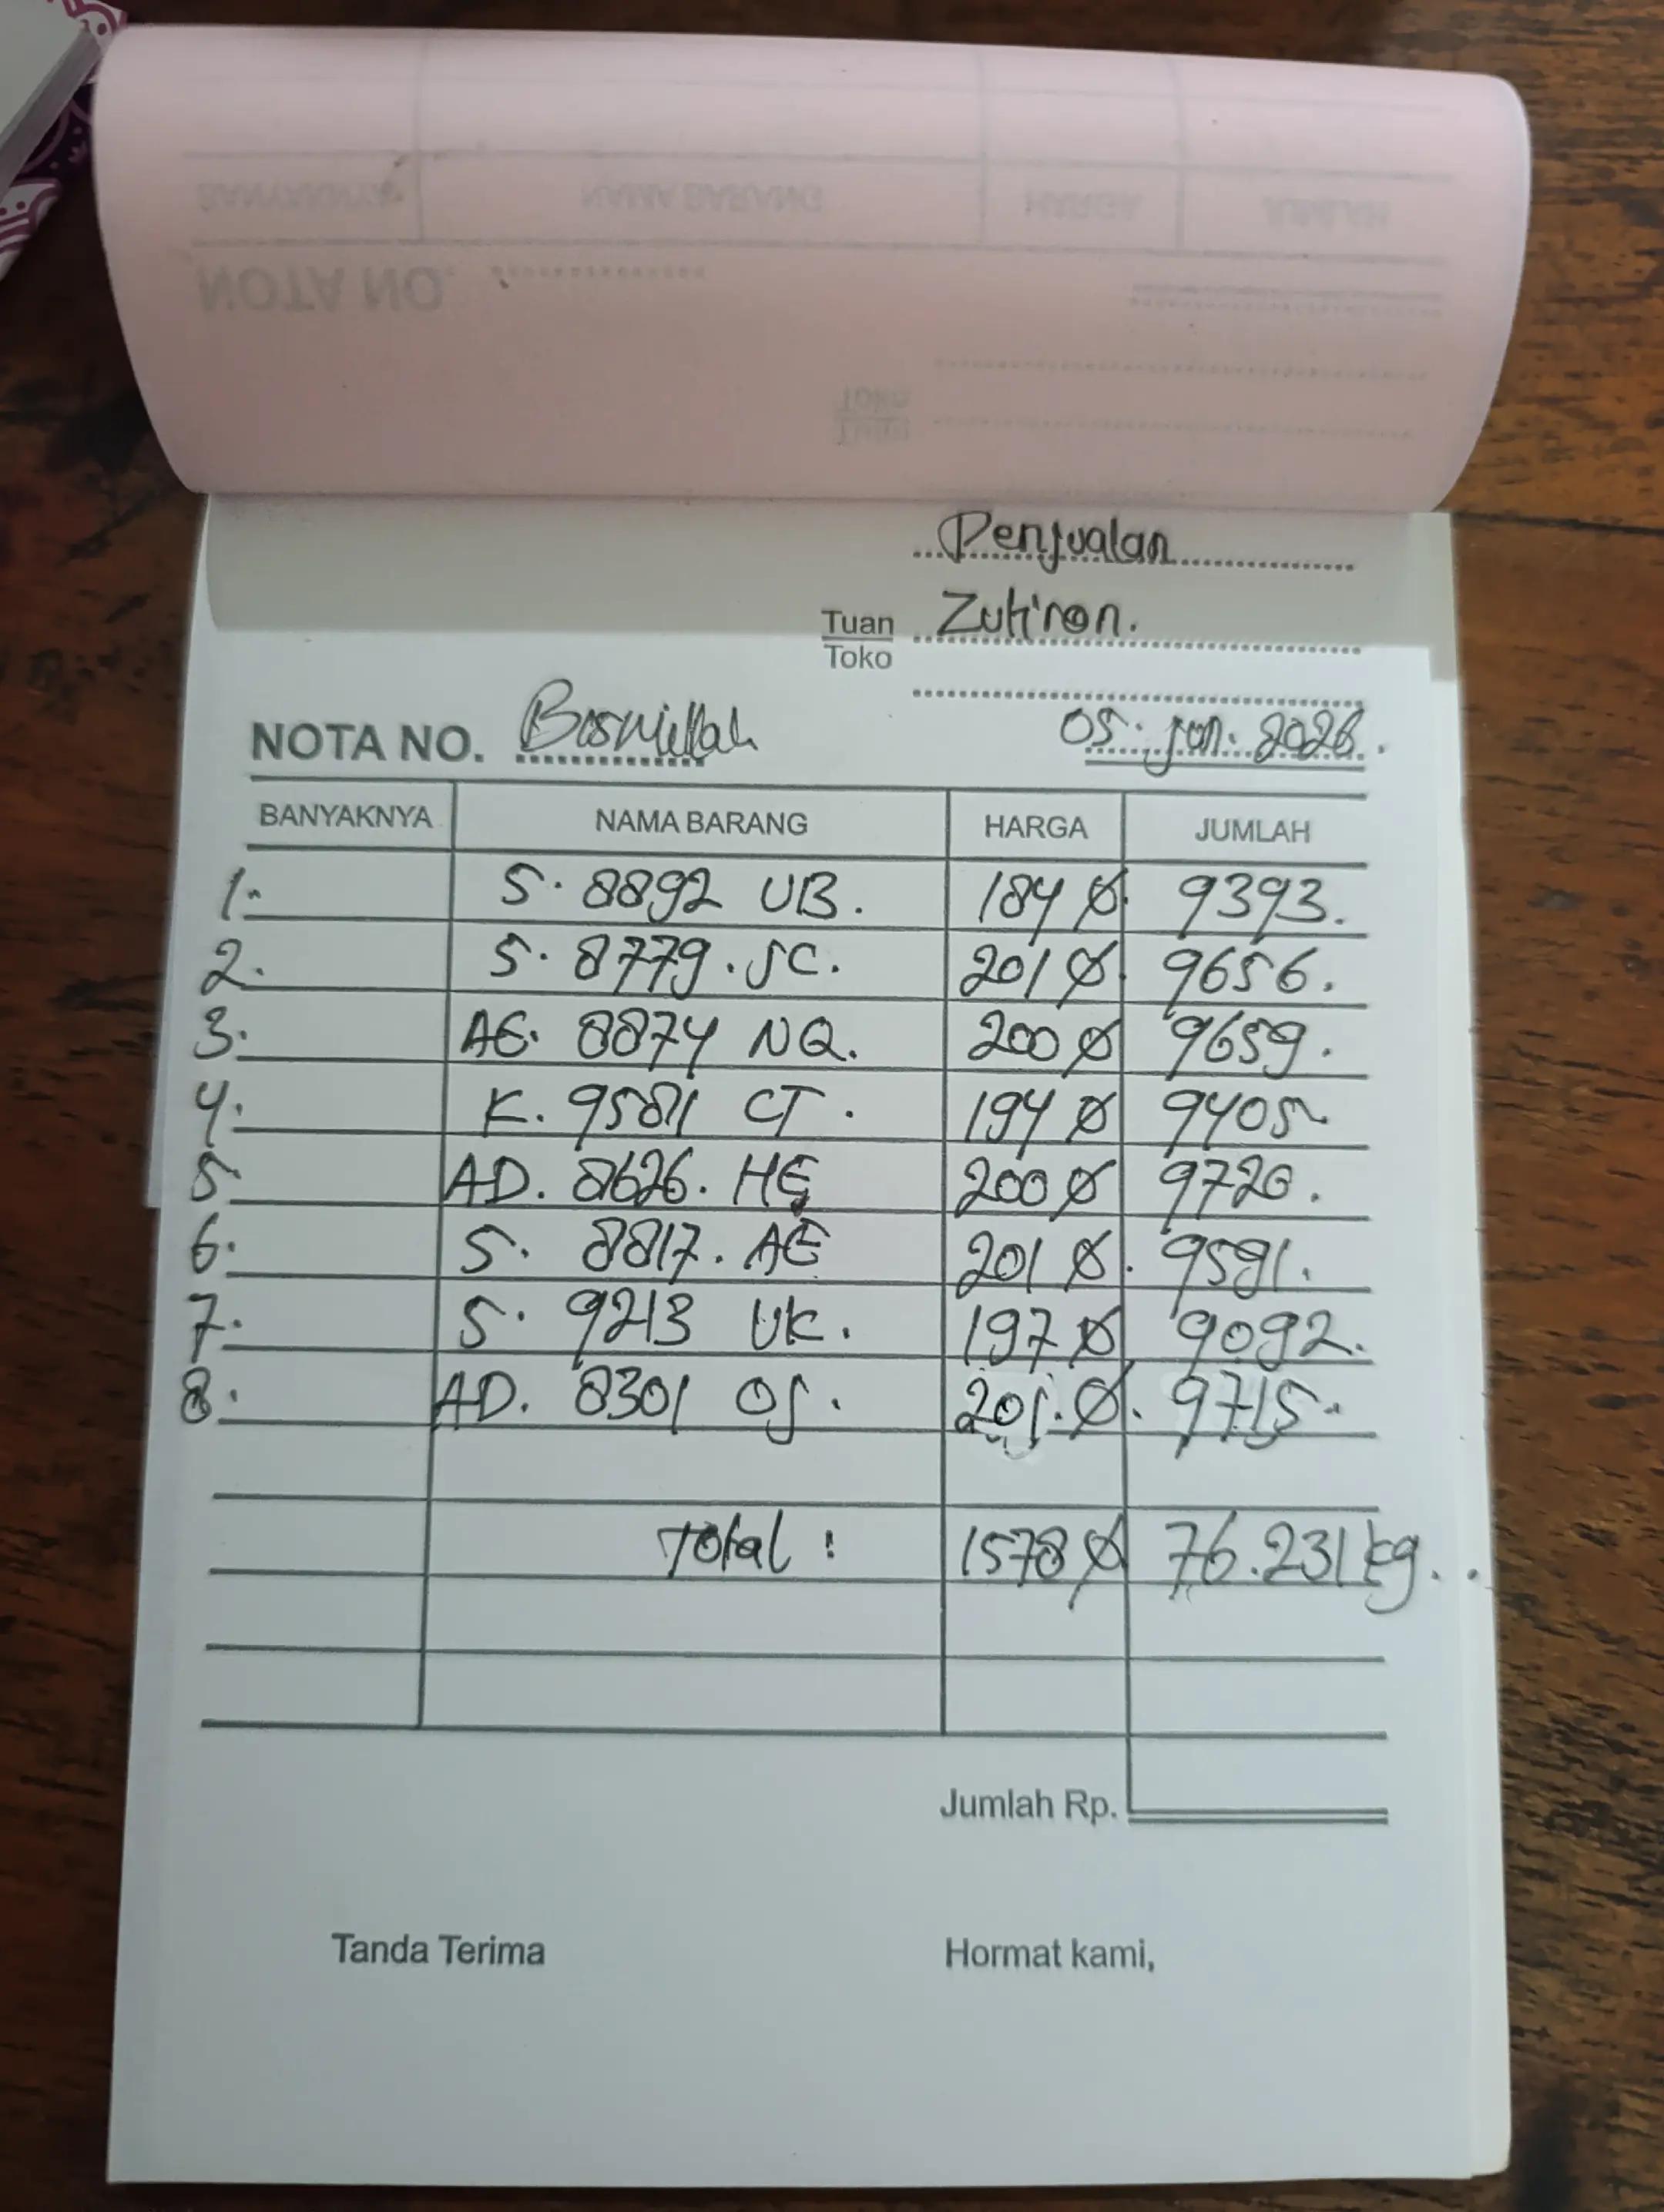 BANYAKNYA NAMA BARANG HARGA JUMLAH
NOTA NO.
Tuan
Toko
Penjualan
Tuan Zuhiron.
Toko
NOTA NO. Bismillah 05. jun. 2026.
BANYAKNYA NAMA BARANG HARGA JUMLAH
1. S. 8892 UB. 184 Ø. 9393.
2. S. 8779. JC. 201 Ø. 9656.
3. AE. 8874 NQ. 200 Ø 9659.
4. K. 9581 CT. 194 Ø 9405
5. AD. 8626. HE 200 Ø 9720.
6. S. 8817. AE 201 Ø. 9591.
7. S. 9213 UK. 197 Ø 9092.
8. AD. 8301 OJ. 201. Ø. 9715.
Total : 1578 Ø 76.231 kg...
Jumlah Rp.
Tanda Terima Hormat kami,